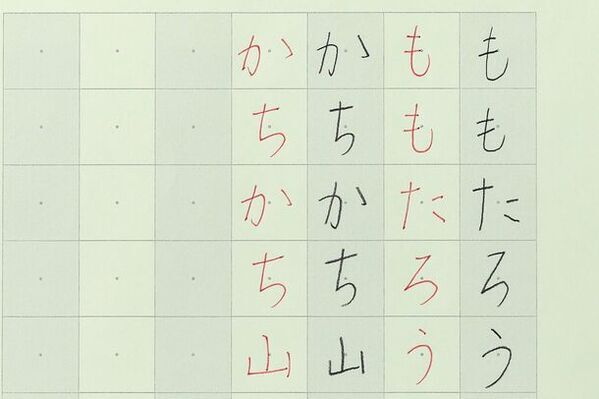 ももたろう
ももたろう
かちかち山
かちかち山